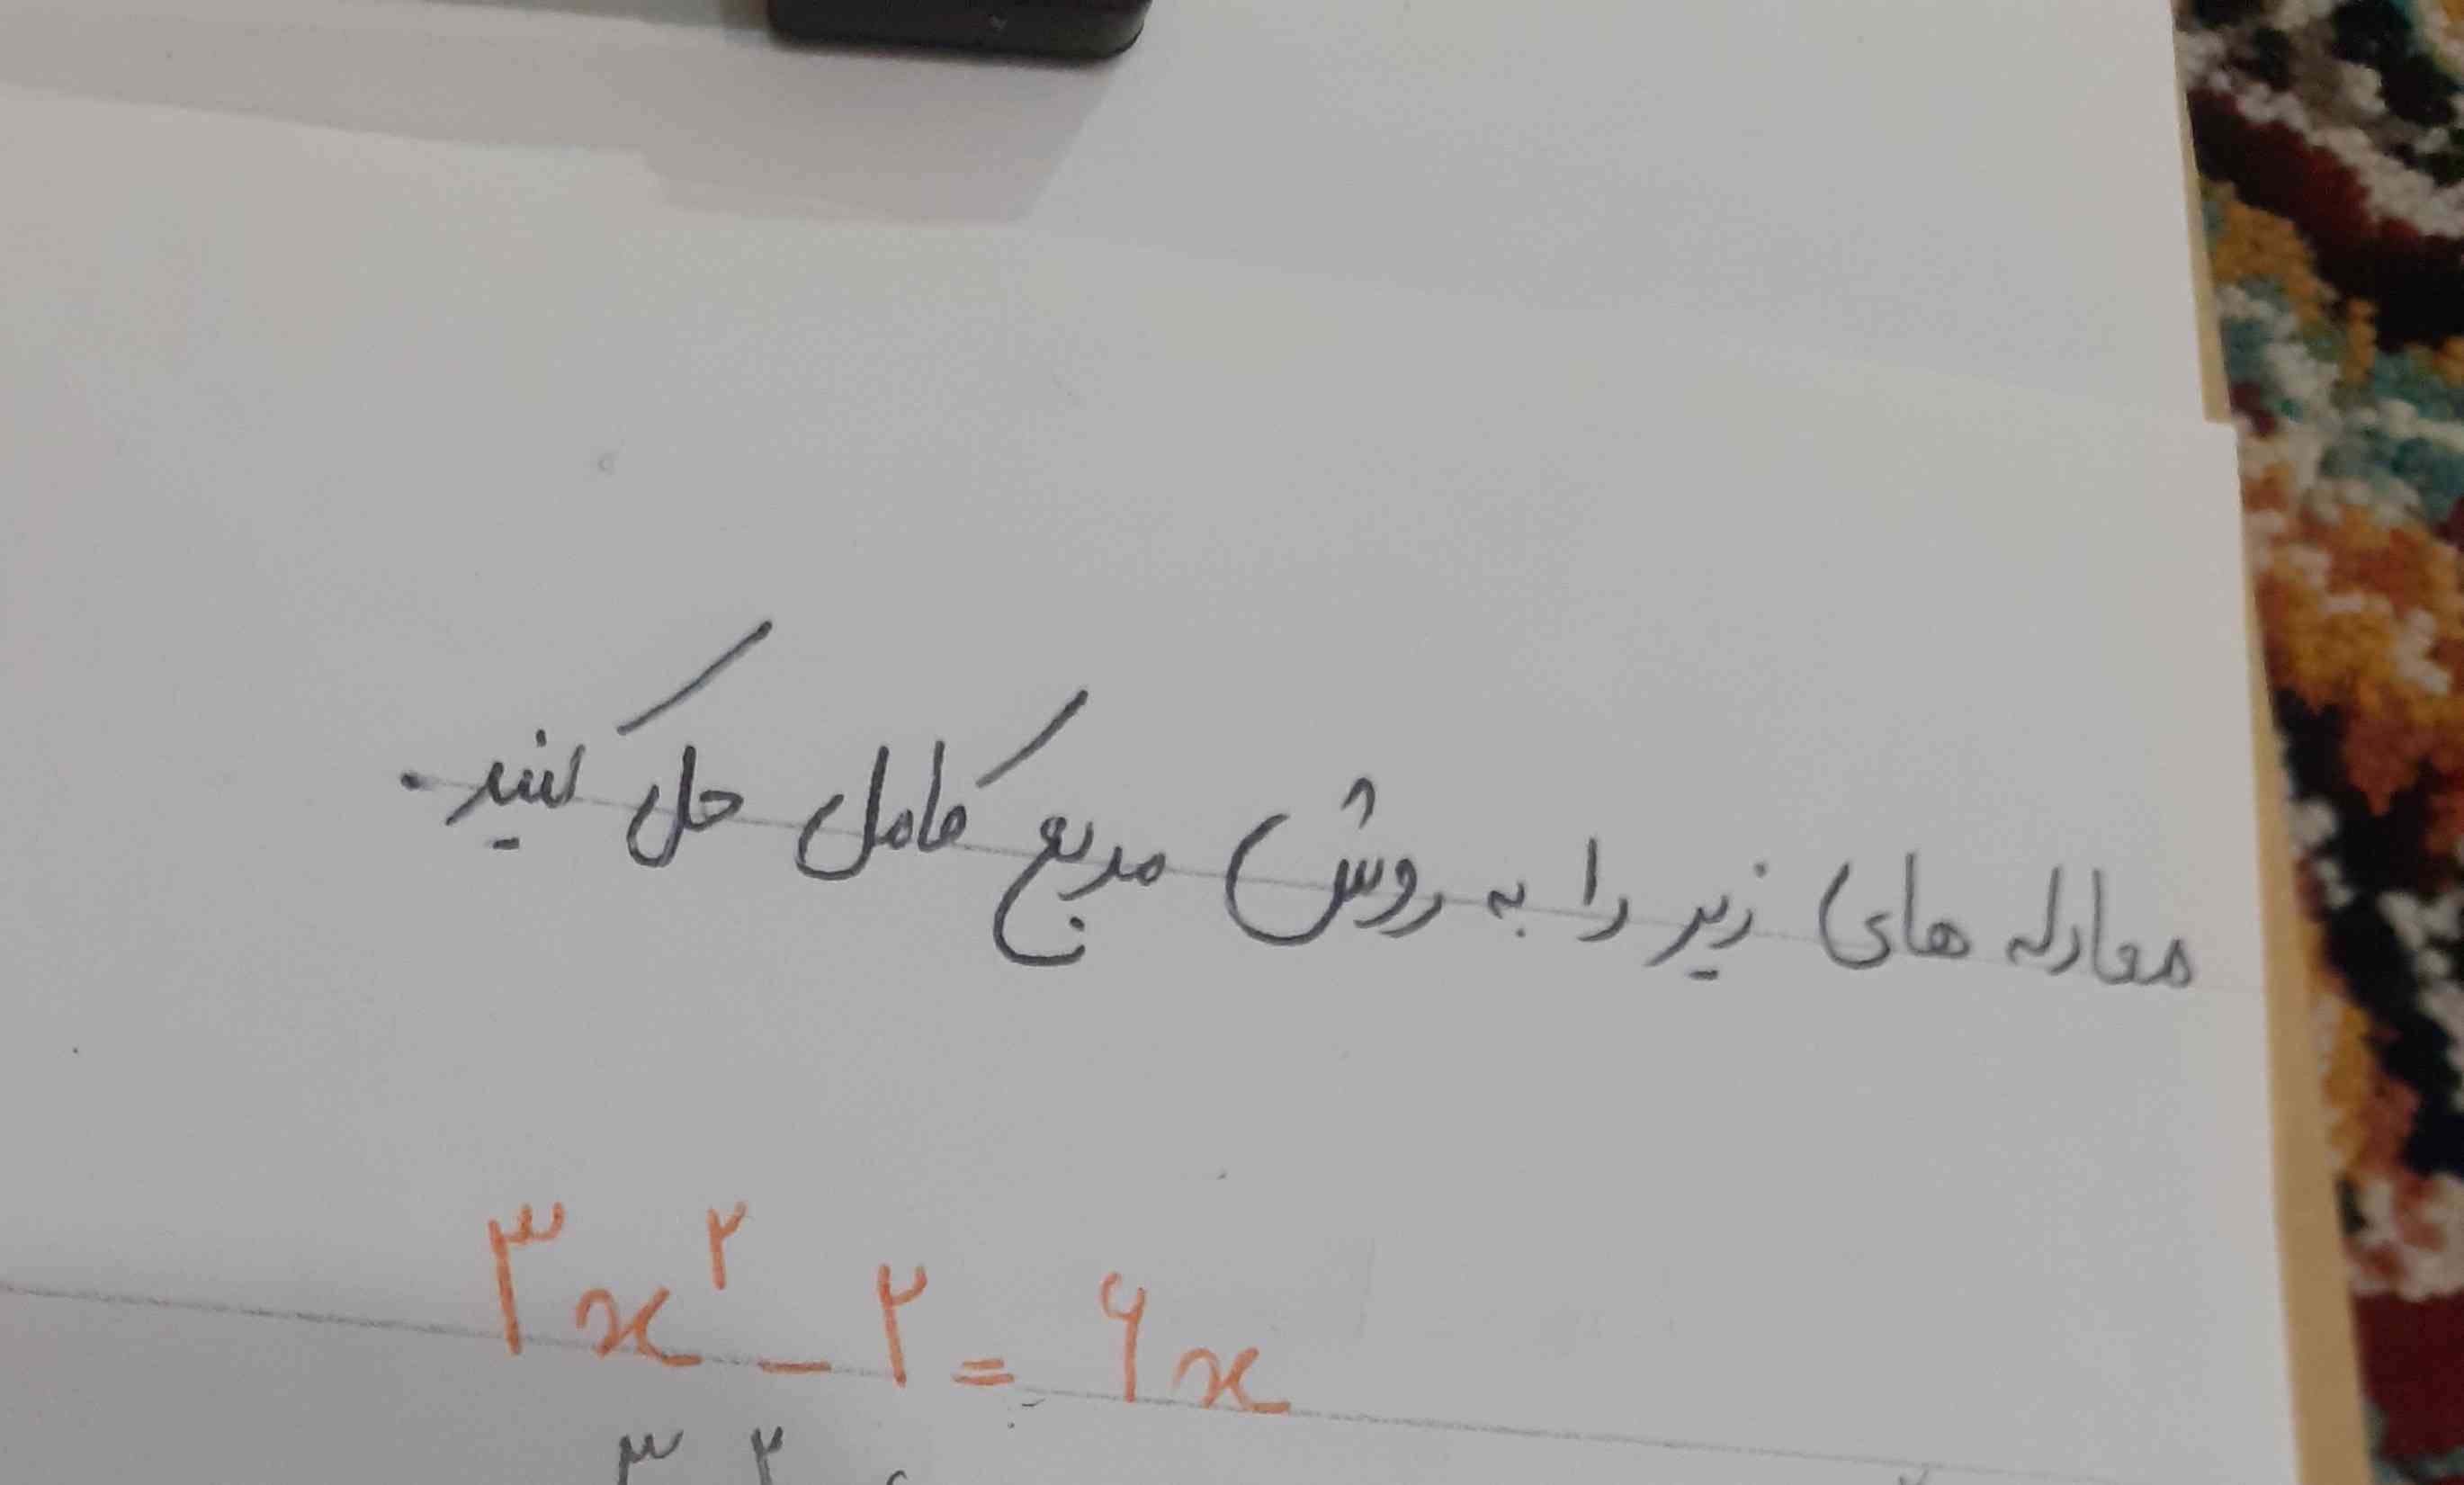 معادله های زیر را به روش مربع کامل حل کنید.
۳x^۲ - ۲ = ۶x